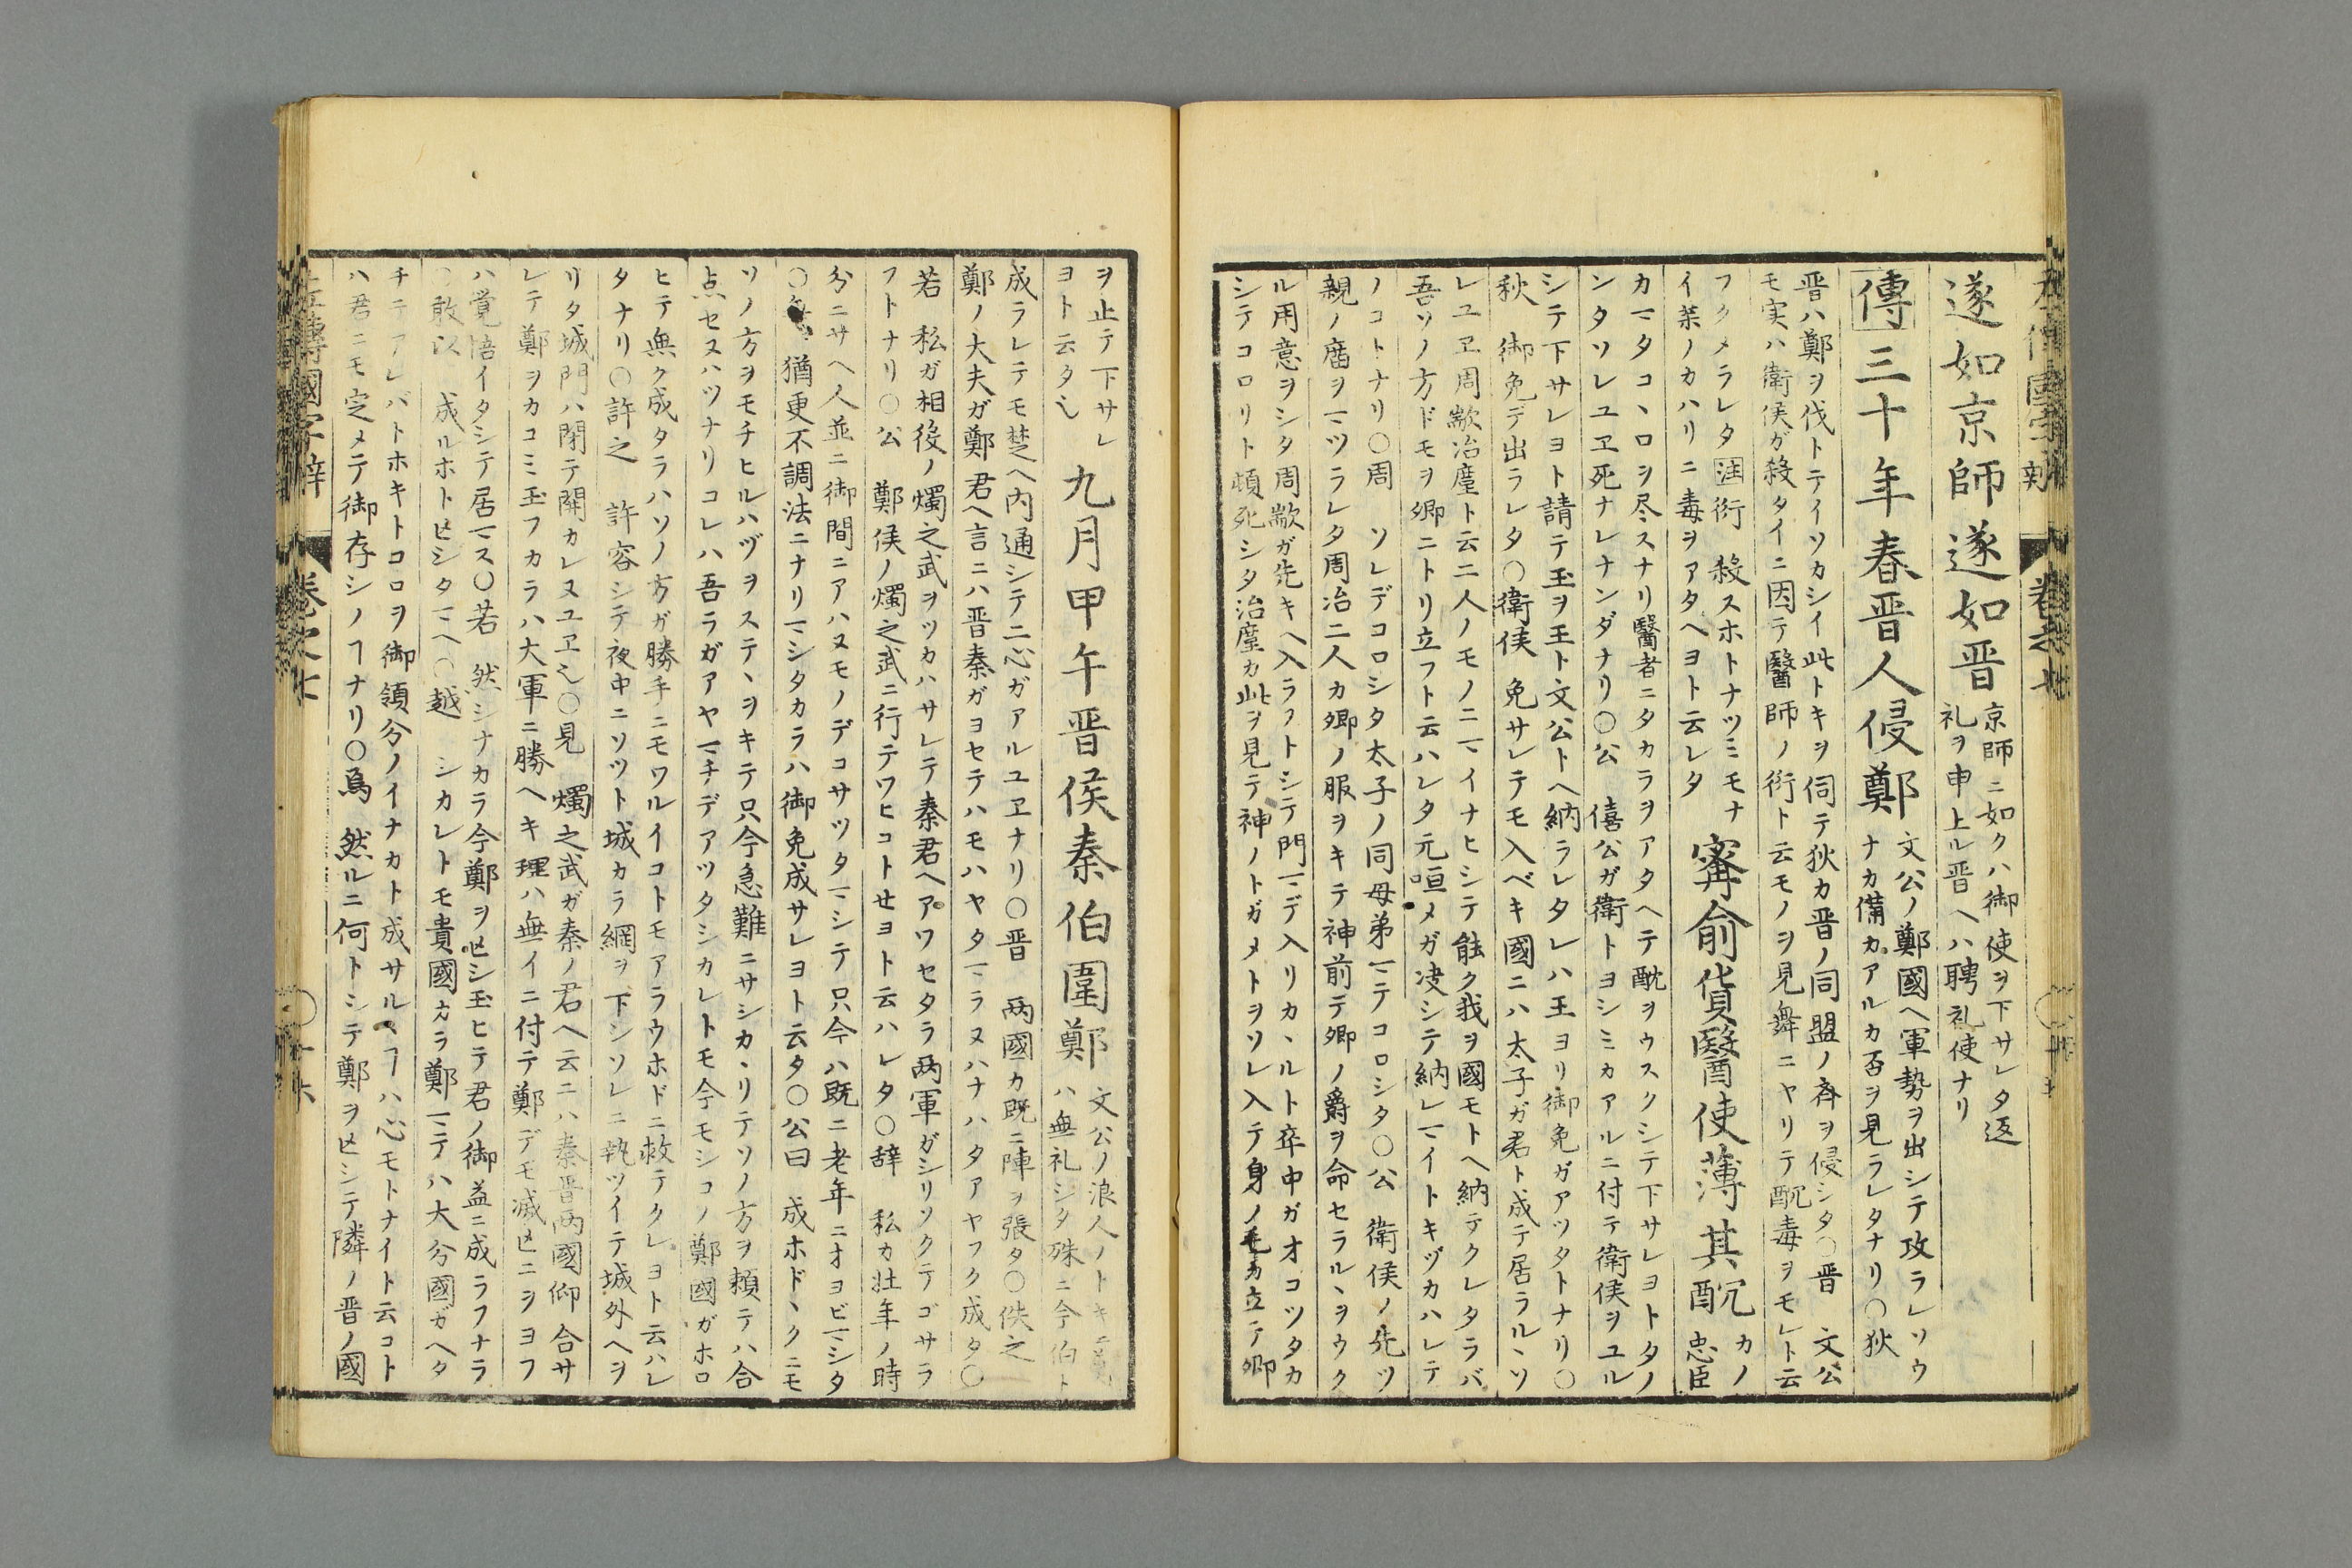 遂如京師遂如晋
京師ニ如クハ御使ヲ下サレタ返
礼ヲ申上ル晋ヘハ聘礼使ナリ
傳三十年春晋人侵鄭
文公ノ鄭國ヘ軍勢ヲ出シテ攻ラレソウ
ナカ備カアルカ否ヲ見ラレタナリ〇狄
晋ハ鄭ヲ伐トテイソカシイ此トキヲ伺テ狄カ晋ノ同盟ノ斉ヲ侵シタ〇晋 文公
モ実ハ衛侯ガ殺タイニ因テ醫師ノ衍ト云モノヲ見舞ニヤリテ酖毒ヲモレト云
フクメラレタ注衍 殺スホトナツミモナ
イ薬ノカハリニ毒ヲアタヘヨト云レタ
甯俞貨醫使薄其酖
カノ
忠臣
カマタコヽロヲ尽スナリ醫者ニタカラヲアタヘテ酖ヲウスクシテ下サレヨトタノ
ンタソレユヱ死ナレナンダナリ〇公 僖公ガ衛トヨシミカアルニ付テ衛侯ヲユル
シテ下サレヨト請テ玉ヲ王ト文公トヘ納ラレタレハ王ヨリ御免ガアツタトナリ〇
秋 御免デ出ラレタ〇衛侯 免サレテモ入ベキ國ニハ太子ガ君ト成テ居ラルヽソ
レユヱ周歂冶廑ト云二人ノモノニマイナヒシテ能ク我ヲ國モトヘ納テクレタラバ
吾ソノ方ドモヲ卿ニトリ立フト云ハレタ元咺メガ凌シテ納レマイトキヅカハレテ
ノコトナリ〇周 ソレデコロシタ太子ノ同母弟マテコロシタ〇公 衛侯ノ先ツ
親ノ庿ヲマツラレタ周冶二人カ卿ノ服ヲキテ神前テ卿ノ爵ヲ命セラルヽヲウク
ル用意ヲシタ周歂ガ先キヘ入ラフトシテ門マデ入リカヽルト卒中ガオコツタカ
シテコロリト頓死シタ冶廑カ此ヲ見テ神ノトガメトヲソレ入テ身ノ毛カ立テ卿
ヲ止テ下サレ
ヨト云タ也
九月甲午晋侯秦伯圍鄭
文公ノ浪人ノトキニ
ハ無礼シタ殊ニ今伯ト
成ラレテモ楚ヘ内通シテ二心ガアルユヱナリ〇晋 两國カ既ニ陣ヲ張タ〇佚之
鄭ノ大夫ガ鄭君ヘ言ニハ晋秦ガヨセテハモハヤタマラヌハナハタアヤフク成タ〇
若 私ガ相役ノ燭之武ヲツカハサレテ秦君ヘアワセタラ两軍ガシリソクテゴサラ
フトナリ〇公 鄭侯ノ燭之武ニ行テワヒコトせヨト云ハレタ〇辞 私カ壮年ノ時
分ニサヘ人並ニ御間ニアハヌモノデコサツタマシテ只今ハ既ニ老年ニオヨビマシタ
猶更不調法ニナリマシタカラハ御免成サレヨト云タ〇公曰 成ホドヽクニモ
ソノ方ヲモチヒルハヅヲステヽヲキテ只今急難ニサシカヽリテソノ方ヲ頼テハ合
点セヌハツナリコレハ吾ラガアヤマチデアツタシカレトモ今モシコノ鄭國ガホロ
ヒテ無ク成タラハソノ方ガ勝手ニモワルイコトモアラウホドニ救テクレヨト云ハレ
タナリ〇許之 許容シテ夜中ニソツト城カラ綱ヲ下シソレニ執ツイテ城外ヘヲ
リタ城門ハ閉テ開カレヌユヱ也〇見 燭之武ガ秦ノ君ヘ云ニハ秦晋两國仰合サ
レテ鄭ヲカコミ玉フカラハ大軍ニ勝ヘキ理ハ無イニ付テ鄭デモ滅亡ニヲヨフ
ハ覚悟イタシテ居マス〇若 然シナカラ今鄭ヲ亡シ玉ヒテ君ノ御益ニ成ラフナラ
敢以 成ルホト亡シタマヘ〇越 シカレトモ貴國カラ鄭マテハ大分國ガヘタ
チテアレバトホキトコロヲ御領分ノイナカト成サルヽヿハ心モトナイト云コト
ハ君ニモ定メテ御存シノヿナリ〇焉 然ルニ何トシテ鄭ヲ亡シテ隣ノ晋ノ國
左傳國字辯 巻之七